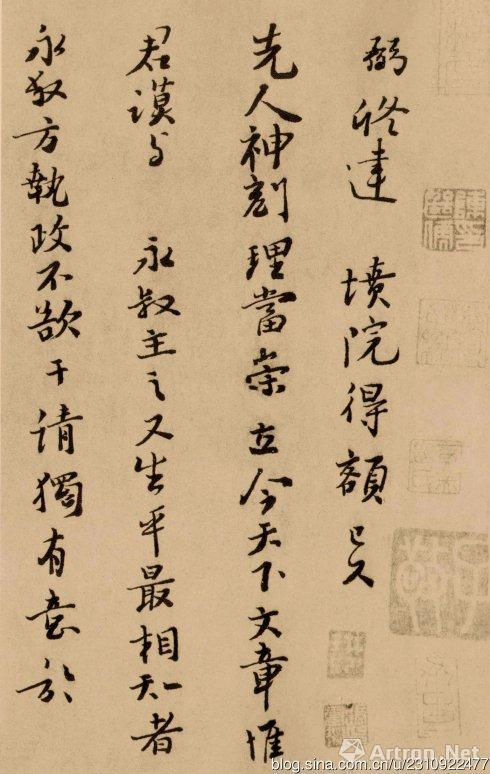 弼修建 墳院得額已久
先人神刻理當崇立今天下文章惟
君謨与 永叔主之又生平最相知者
永叔方執政不欲干請獨有意於
Artron.Net
blog.sina.com.cn/u/2310922477